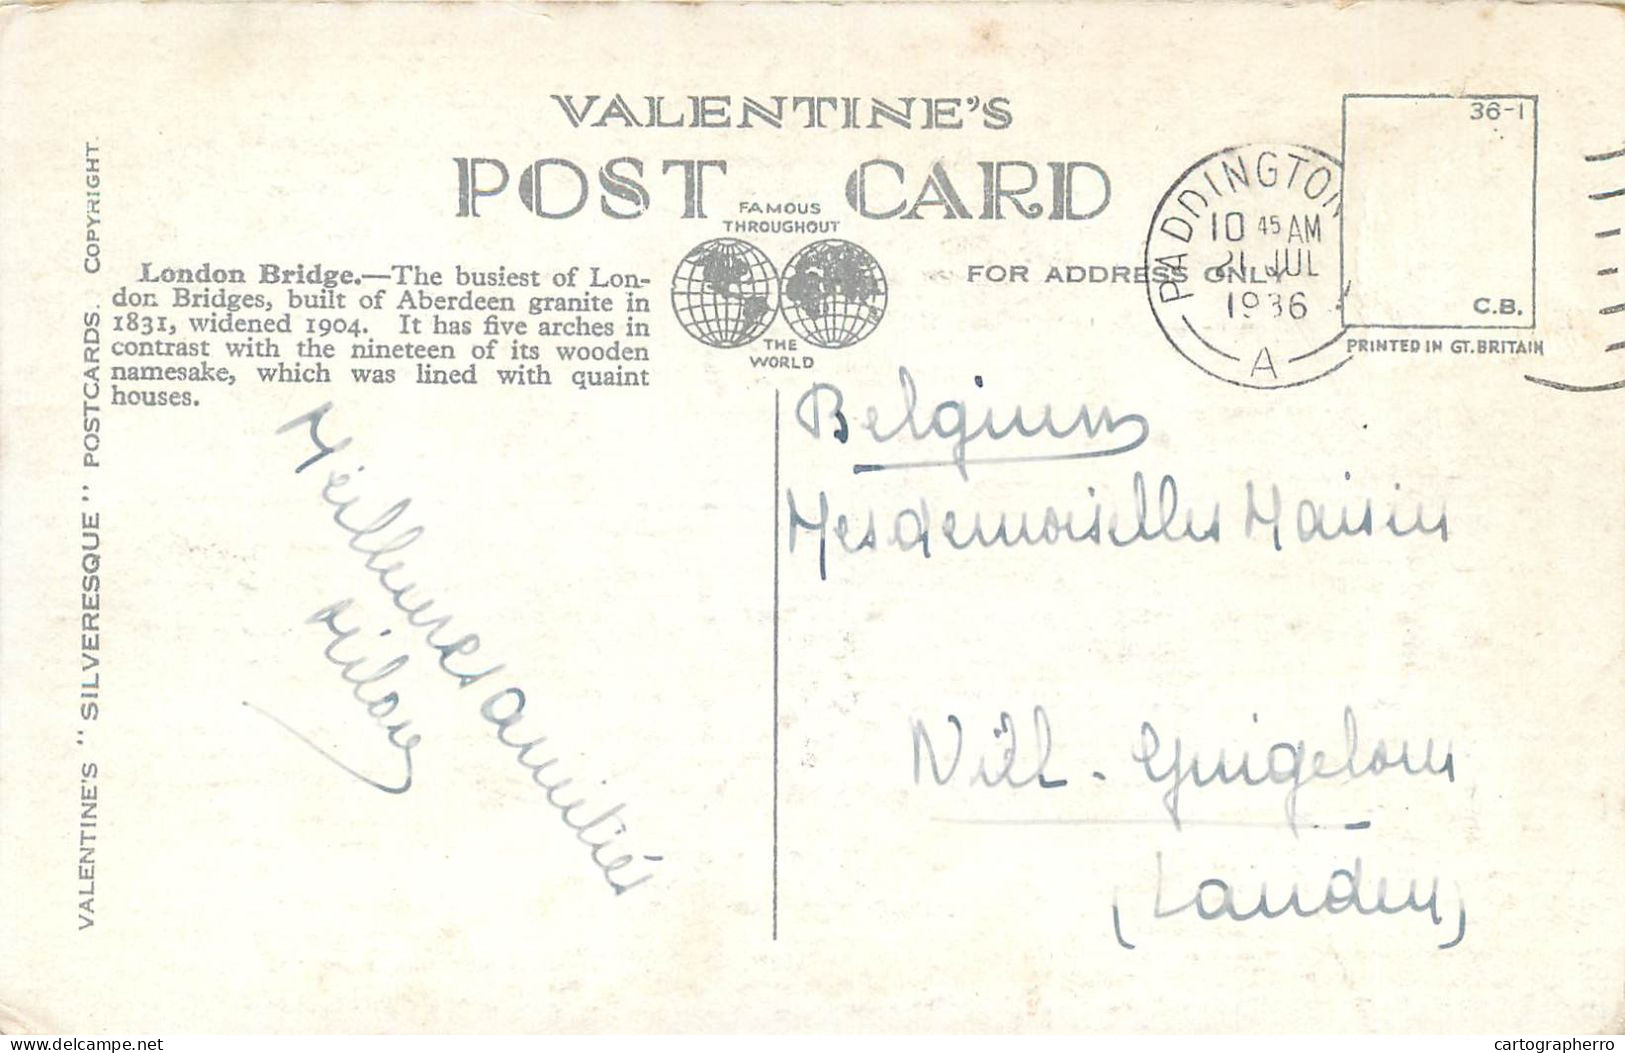 VALENTINE'S
POST CARD
FAMOUS
THROUGHOUT
THE
WORLD
FOR ADDRESS ONLY
36-1
C.B.
PRINTED IN GT. BRITAIN
PADDINGTON
10 45 AM
21 JUL
1936
A
London Bridge.—The busiest of Lon-
don Bridges, built of Aberdeen granite in
1831, widened 1904. It has five arches in
contrast with the nineteen of its wooden
namesake, which was lined with quaint
houses.
VALENTINE'S "SILVERESQUE" POSTCARDS. COPYRIGHT.
Meilleures amitiés
Belgium
Mesdemoiselles Maisin
(Landen)
delcampe.net
cartographerro